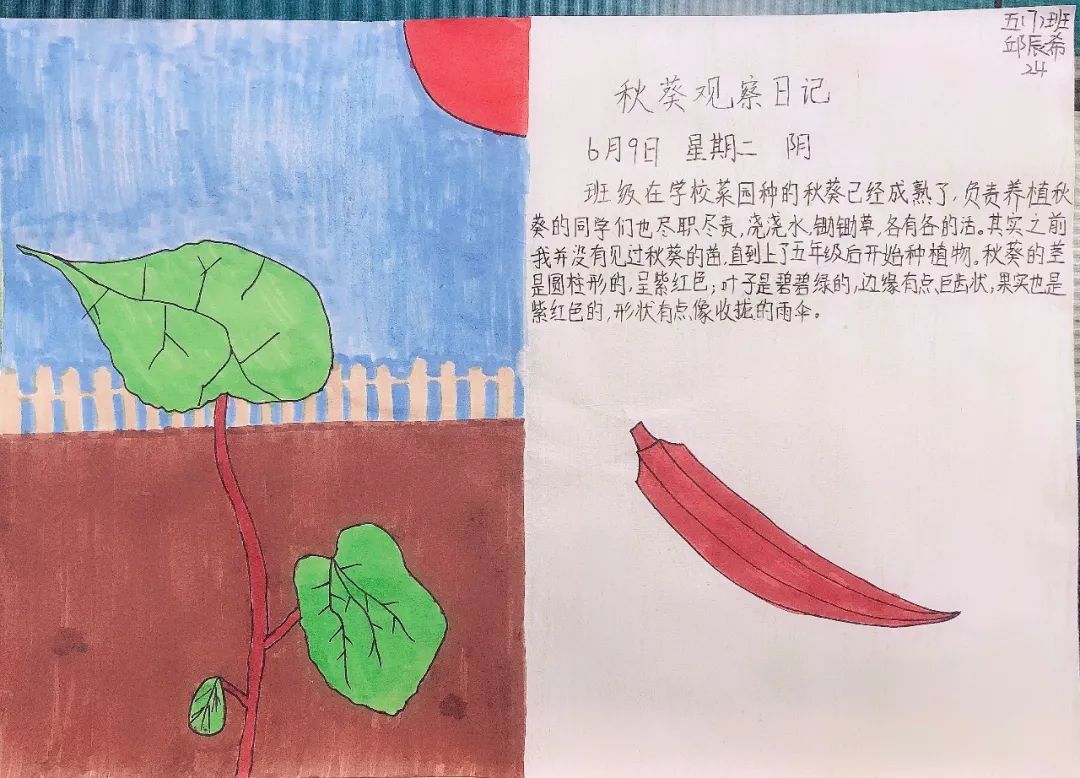 五(7)班
邱辰希
24
秋葵观察日记
6月9日 星期二 阴
班级在学校菜园种的秋葵已经成熟了,负责养植秋
葵的同学们也尽职尽责,浇浇水,锄锄草,各有各的活。其实之前
我并没有见过秋葵的苗,直到上了五年级后开始种植物。秋葵的茎
是圆柱形的,呈紫红色;叶子是碧碧绿的,边缘有点巨齿状,果实也是
紫红色的,形状有点像收拢的雨伞。